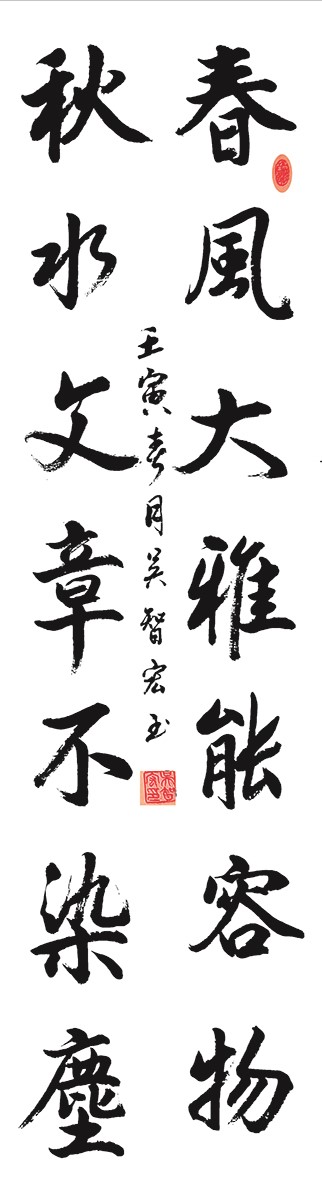 春風大雅能容物
秋水文章不染塵
壬寅春月吴智宏書